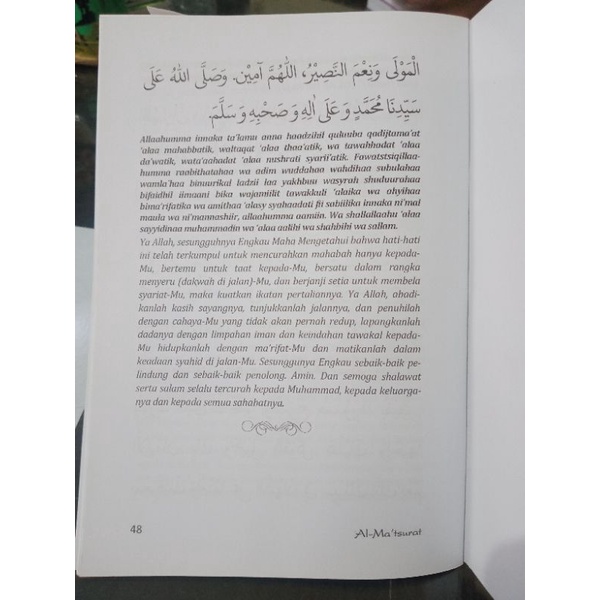 الْمَوْلَى وَنِعْمَ النَّصِيْرُ، اَللّٰهُمَّ آمِيْن. وَصَلَّى اللهُ عَلَى
سَيِّدِنَا مُحَمَّدٍ وَعَلَى اٰلِهِ وَصَحْبِهِ وَسَلَّمَ.
Allaahumma innaka ta'lamu anna haadzihil quluuba qadijtama'at
'alaa mahabbatik, waltaqat 'alaa thaa'atik, wa tawahhadat 'alaa
da'watik, wata'aahadat 'alaa nushrati syarii'atik. Fawatstsiqillaa-
humma raabithatahaa wa adim wuddahaa wahdihaa subulahaa
wamla'haa binuurikal ladzii laa yakhbuu wasyrah shuduurahaa
bifaidhil iimaani bika wajamiilit tawakkuli 'alaika wa ahyihaa
bima'rifatika wa amithaa 'alasy syahaadati fii sabiilika innaka ni'mal
maula wa ni'mannashiir, allaahumma aamiin. Wa shallallaahu 'alaa
sayyidinaa muhammadin wa 'alaa aalihi wa shahbihi wa sallam.
Ya Allah, sesungguhnya Engkau Maha Mengetahui bahwa hati-hati
ini telah terkumpul untuk mencurahkan mahabah hanya kepada-
Mu, bertemu untuk taat kepada-Mu, bersatu dalam rangka
menyeru (dakwah di jalan)-Mu, dan berjanji setia untuk membela
syariat-Mu, maka kuatkan ikatan pertaliannya. Ya Allah, abadi-
kanlah kasih sayangnya, tunjukkanlah jalannya, dan penuhilah
dengan cahaya-Mu yang tidak akan pernah redup, lapangkanlah
dadanya dengan limpahan iman dan keindahan tawakal kepada-
Mu hidupkanlah dengan ma'rifat-Mu dan matikanlah dalam
keadaan syahid di jalan-Mu. Sesunggunya Engkau sebaik-baik pe-
lindung dan sebaik-baik penolong. Amin. Dan semoga shalawat
serta salam selalu tercurah kepada Muhammad, kepada keluarga-
nya dan kepada semua sahabatnya.
48
Al-Ma'tsurat